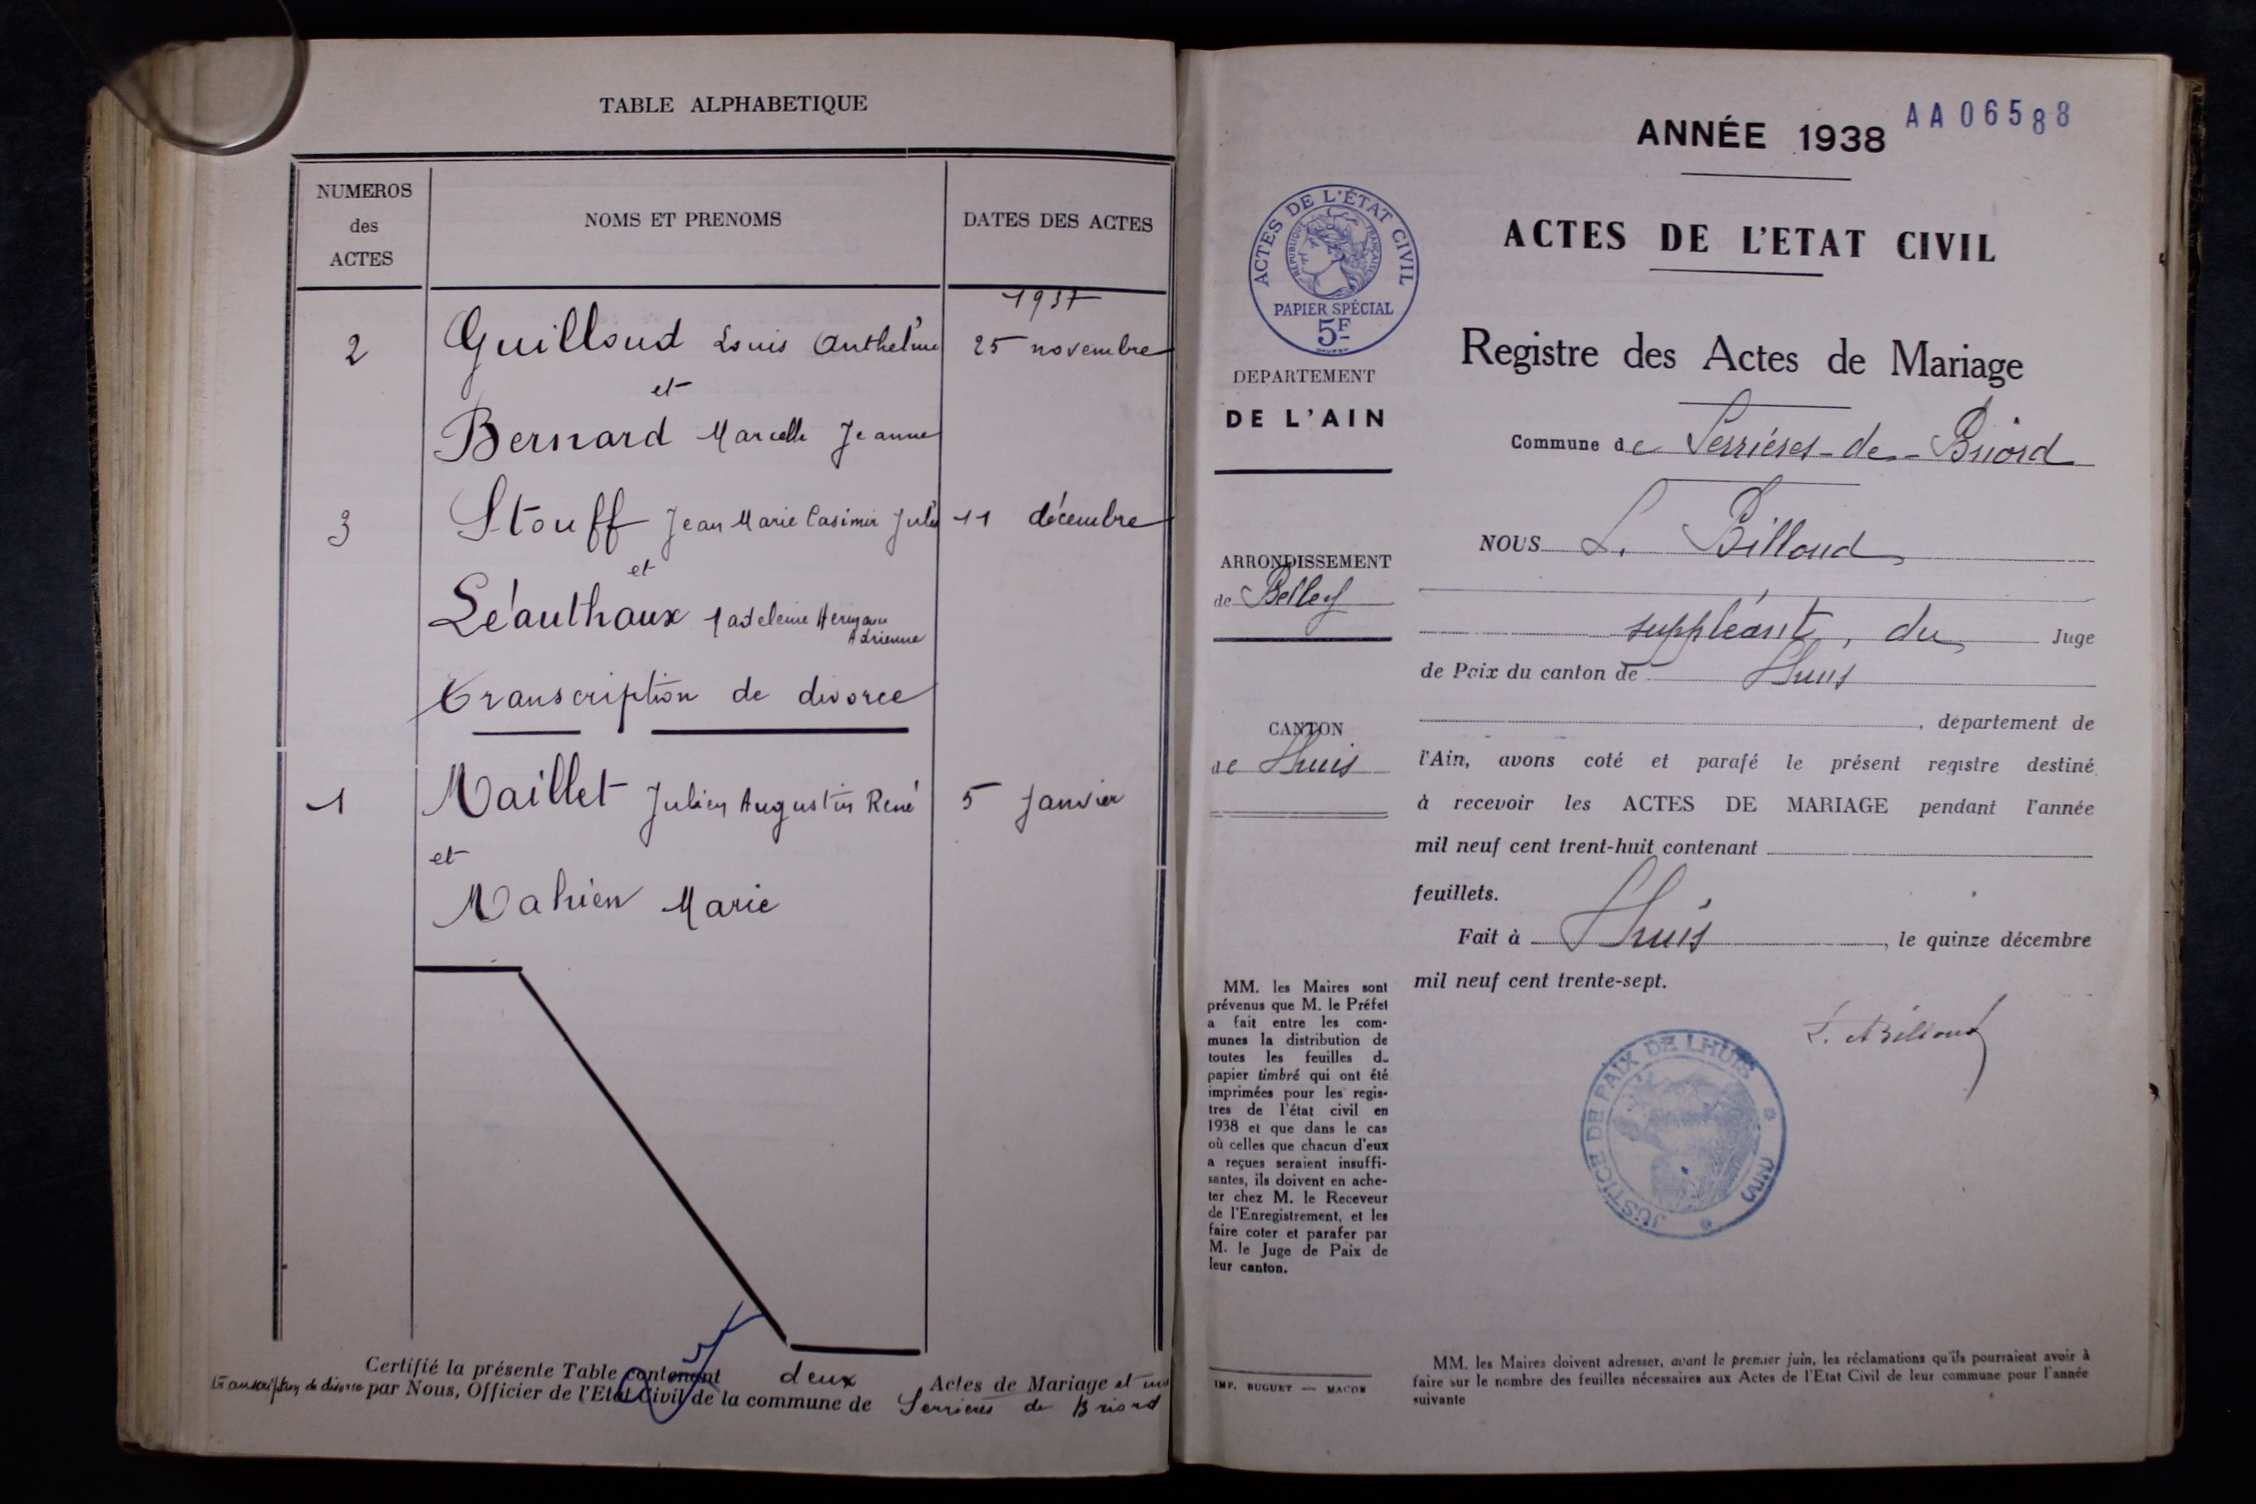 TABLE ALPHABETIQUE
NUMEROS
des
ACTES
NOMS ET PRENOMS
DATES DES ACTES
1937
2
Guilloud Louis Anthelme
25 novembre
et
Bernard Marcelle Jeanne
3
Stouff Jean Marie Casimir Jules
11 décembre
et
Léauthaux Madeleine
Adrienne
transcription de divorce
1
Maillet Julien Augustin René
5 janvier
et
Mahien Marie
Certifié la présente Table contenant deux Actes de Mariage et une
transcription de divorce par Nous, Officier de l'Etat Civil de la commune de Serrieres de Briord
AA06588
ANNÉE 1938
ACTES DE L'ETAT CIVIL
Registre des Actes de Mariage
ACTES DE L'ÉTAT CIVIL
RÉPUBLIQUE FRANÇAISE
PAPIER SPÉCIAL
5F
DEPARTEMENT
DE L'AIN
ARRONDISSEMENT
de Belley
CANTON
de Lhuis
Commune de Serrières-de-Briord
NOUS L. Billoud
suppléant, du Juge
de Paix du canton de Lhuis
, département de
l'Ain, avons coté et parafé le présent registre destiné
à recevoir les ACTES DE MARIAGE pendant l'année
mil neuf cent trent-huit contenant
feuillets.
Fait à Lhuis, le quinze décembre
mil neuf cent trente-sept.
L. Billoud
JUSTICE DE PAIX DE LHUIS
(AIN)
MM. les Maires sont
prévenus que M. le Préfet
a fait entre les com-
munes la distribution de
toutes les feuilles d
papier timbré qui ont été
imprimées pour les regis-
tres de l'état civil en
1938 et que dans le cas
où celles que chacun d'eux
a reçues seraient insuffi-
santes, ils doivent en ache-
ter chez M. le Receveur
de l'Enregistrement, et les
faire coter et parafer par
M. le Juge de Paix de
leur canton.
IMP. BUGUET — MACON
MM. les Maires doivent adresser, avant le premier juin, les réclamations qu'ils pourraient avoir à
faire sur le nombre des feuilles nécessaires aux Actes de l'Etat Civil de leur commune pour l'année
suivante